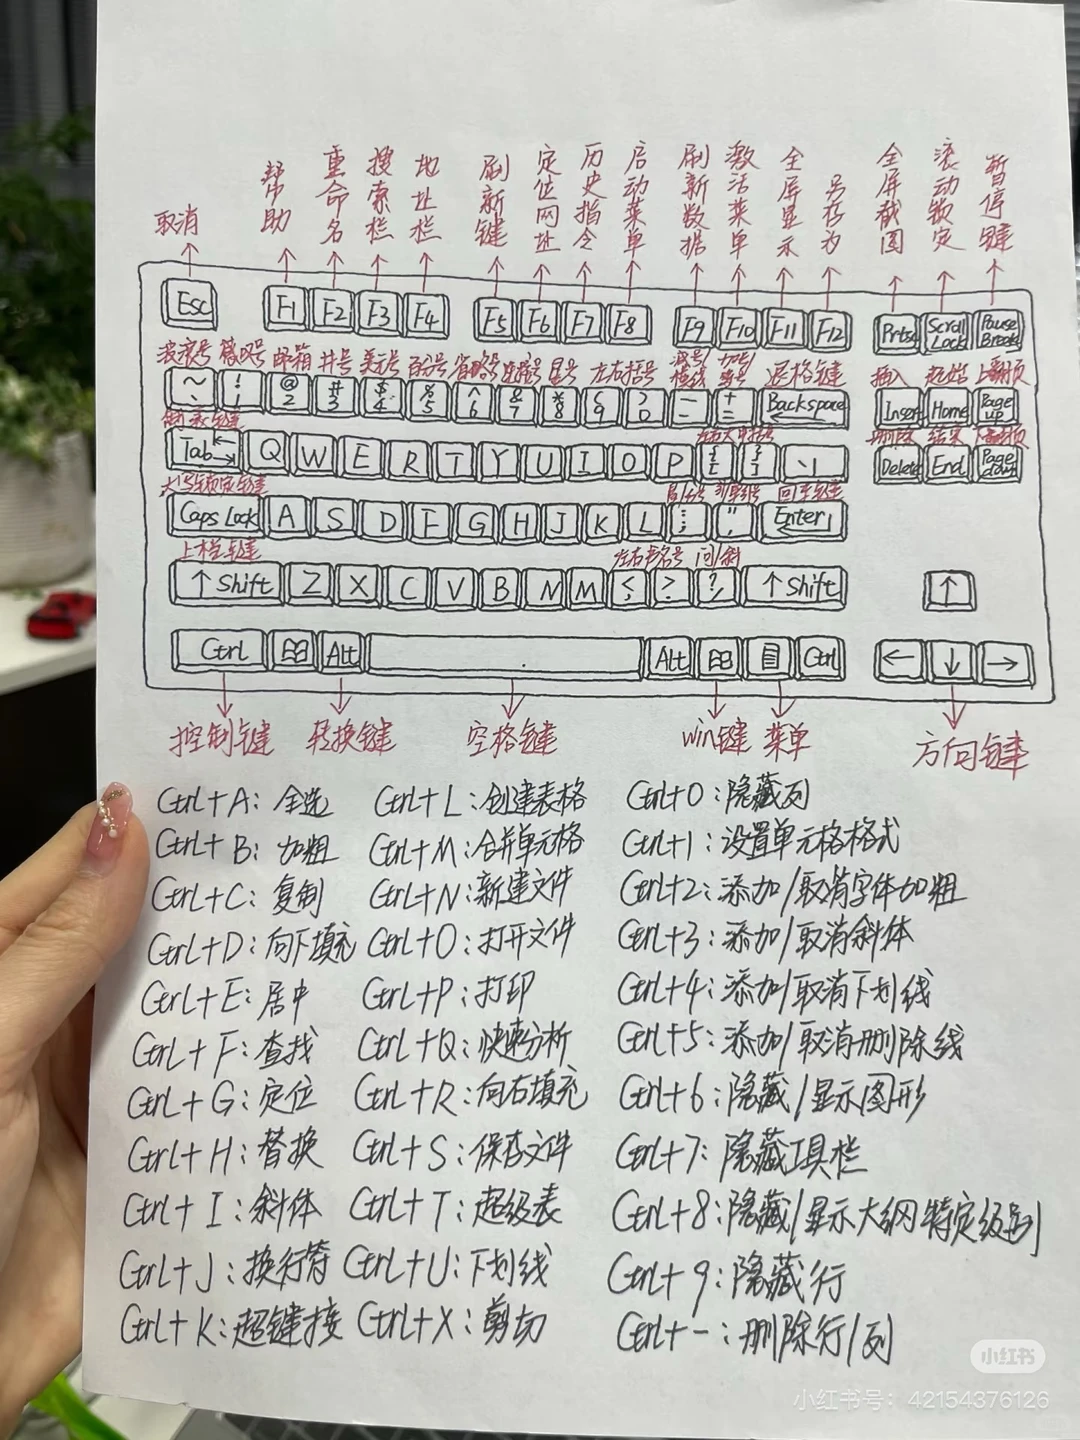 取消 帮助 重命名 搜索栏 地址栏 刷新键 定位网址 历史指令 启动菜单 刷新数据 激活菜单 全屏显示 另存为 全屏截图 滚动锁定 暂停键
Esc F1 F2 F3 F4 F5 F6 F7 F8 F9 F10 F11 F12 Prtsc Scroll Lock Pause Break
波浪号 感叹号 邮箱 井号 美元号 百分号 省略号 星号 左右括号 减号/横线 退格键 插入 起始 上翻页
~ ` ! 1 @ 2 # 3 $ 4 % 5 ^ 6 & 7 * 8 ( 9 ) 0 - + = Backspace Insert Home Page up
制表键 删除 结束 下翻页
Tab Q W E R T Y U I O P { [ } ] \ | Delete End Page down
大写锁定键 回车键
Caps Lock A S D F G H J K L : ; " Enter
上档键 左右书名号 问/斜
↑ Shift Z X C V B N M < > ? / ↑ Shift ↑
Ctrl Alt Alt Ctrl ← ↓ →
控制键 转换键 空格键 win键 菜单 方向键
Ctrl+A: 全选 Ctrl+L: 创建表格 Ctrl+0: 隐藏列
Ctrl+B: 加粗 Ctrl+M: 合并单元格 Ctrl+1: 设置单元格格式
Ctrl+C: 复制 Ctrl+N: 新建文件 Ctrl+2: 添加/取消字体加粗
Ctrl+D: 向下填充 Ctrl+O: 打开文件 Ctrl+3: 添加/取消斜体
Ctrl+E: 居中 Ctrl+P: 打印 Ctrl+4: 添加/取消下划线
Ctrl+F: 查找 Ctrl+Q: 快速分析 Ctrl+5: 添加/取消删除线
Ctrl+G: 定位 Ctrl+R: 向右填充 Ctrl+6: 隐藏/显示图形
Ctrl+H: 替换 Ctrl+S: 保存文件 Ctrl+7: 隐藏工具栏
Ctrl+I: 斜体 Ctrl+T: 超级表 Ctrl+8: 隐藏/显示大纲特定级别
Ctrl+J: 换行符 Ctrl+U: 下划线 Ctrl+9: 隐藏行
Ctrl+K: 超键接 Ctrl+X: 剪切 Ctrl+-: 删除行/列
小红书
小红书号: 42154376126